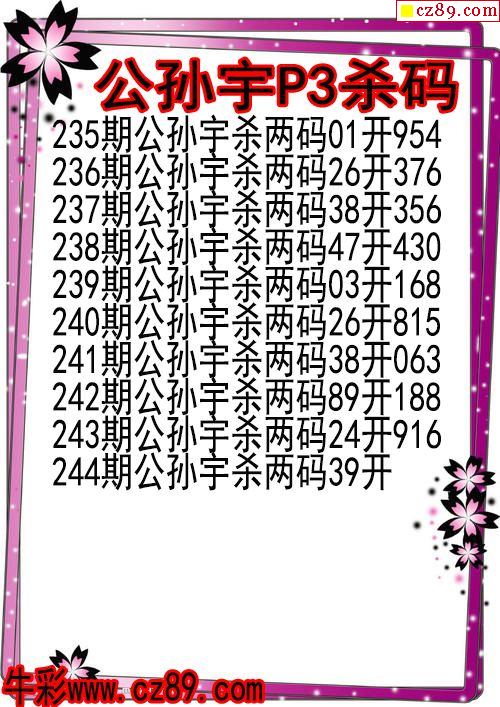 cz89.com
公孙宇P3杀码
235期公孙宇杀两码01开954
236期公孙宇杀两码26开376
237期公孙宇杀两码38开356
238期公孙宇杀两码47开430
239期公孙宇杀两码03开168
240期公孙宇杀两码26开815
241期公孙宇杀两码38开063
242期公孙宇杀两码89开188
243期公孙宇杀两码24开916
244期公孙宇杀两码39开
牛彩www.cz89.com